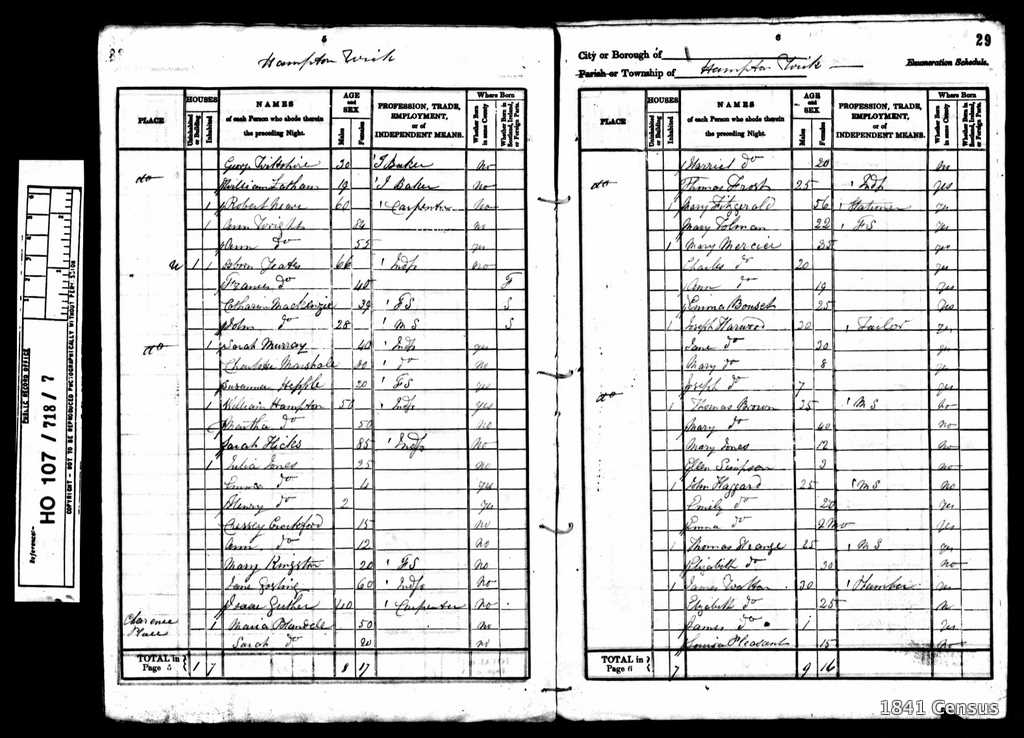 5
Hampton Wick
PLACE HOUSES NAMES of each Person who abode therein the preceding Night. AGE and SEX PROFESSION, TRADE, EMPLOYMENT, or of INDEPENDENT MEANS. Where Born
Uninhabited or Building Inhabited Males Females Whether Born in same County Whether Born in Scotland, Ireland, or Foreign Parts.
George Wiltshire 20 J Baker No
do William 19 J Baker No
1 Robert 60 Carpenter No
1 Ann Wright no
Ann do 55 yes
U 1 1 Osborn Yeates 66 Indp no
Frances do 40 F
Catharine Mackenzie 39 FS S
John do 28 MS S
do 1 Sarah Murray 40 Indp yes
Charlotte Marshall do No
Susannah Hepple 20 FS yes
1 William Hampton 50 Indp yes
Martha do 50 no
Sarah Hicks 85 Indp No
1 Julia Jones 25 no
Emma do 4 yes
Henry do 2 yes
Crockford 15 no
Ann do 12 no
Mary Kingston 20 FS No
Jane Gosling 60 Indp No
Isaac 40 Carpenter No
Clarence Place 1 Maria 50 No
Sarah do 20 no
TOTAL in Page 5 1 7 8 17
6
29
City or Borough of
Parish or Township of Hampton Wick
Enumeration Schedule.
PLACE HOUSES NAMES of each Person who abode therein the preceding Night. AGE and SEX PROFESSION, TRADE, EMPLOYMENT, or of INDEPENDENT MEANS. Where Born
Uninhabited or Building Inhabited Males Females Whether Born in same County Whether Born in Scotland, Ireland, or Foreign Parts.
Harriet do 20 no
do Thomas Frost 25 Indp Yes
1 Mary Fitzgerald 56 Stationer yes
Mary Tolman 22 FS yes
1 Mary Mercier yes
Charles do 20 yes
Ann do 19 yes
Emma 25 Yes
1 Joseph Harwood 30 Tailor yes
Jane do 30 yes
Mary do 8 yes
Joseph do 7 yes
do 1 Thomas Brown 35 MS No
Mary do 40 no
Mary Jones 12 No
Ellen Simpson 2 no
1 John Haggard 25 MS No
Emily do 20 Yes
Emma do 9 Mo Yes
1 Thomas Strange 25 MS yes
Elizabeth do 30 No
1 James 30 Plumber
Elizabeth do 25
James do 1 Yes
Louisa Pleasant 15 No
TOTAL in Page 6 7 9 16
Reference:-
HO 107 / 718 / 7
PUBLIC RECORD OFFICE
COPYRIGHT - NOT TO BE REPRODUCED PHOTOGRAPHICALLY WITHOUT PERMISSION
1841 Census